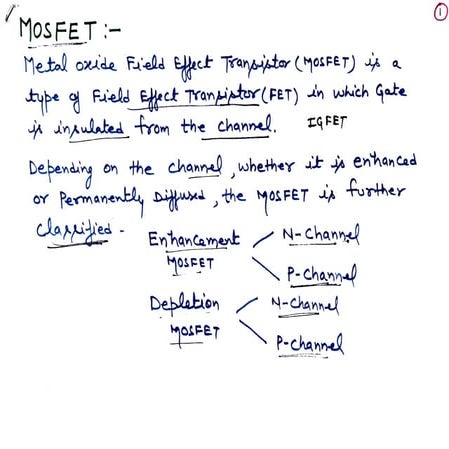 1
MOSFET :-
Metal oxide Field Effect Transistor (MOSFET) is a
type of Field Effect Transistor (FET) in which Gate
is insulated from the channel. IGFET
Depending on the channel, whether it is enhanced
or Permanently Diffused, the MOSFET is further
classified -
Enhancement MOSFET
N-Channel
P-Channel
Depletion MOSFET
N-Channel
P-Channel